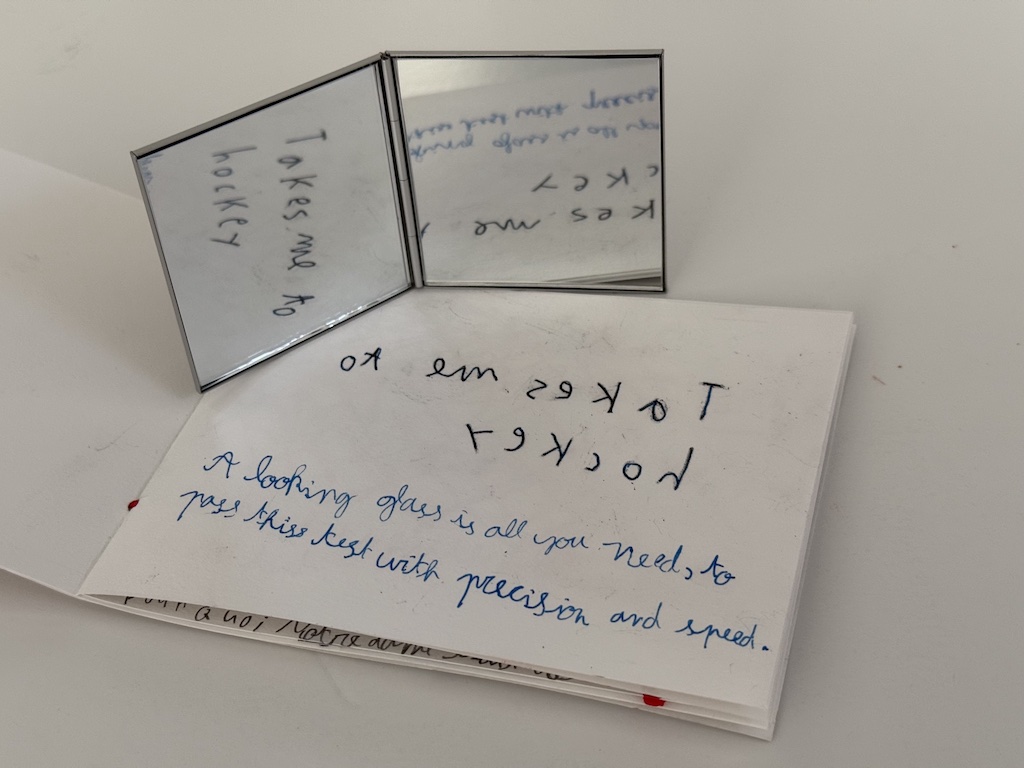 Takes me to
hockey
Takes me to
hockey
A looking glass is all you need, to
pass thiss test with precision and speed.